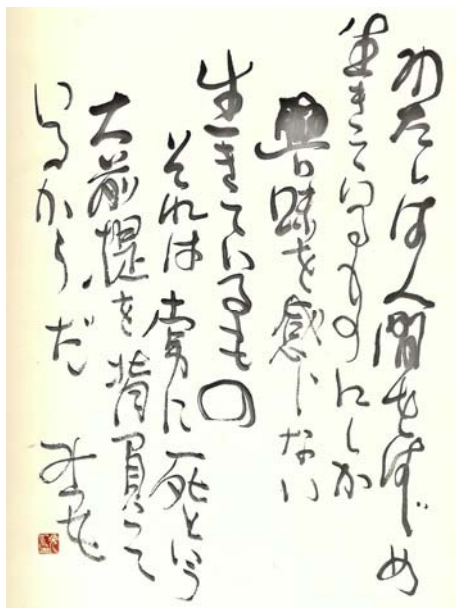 わたしは人間をはじめ
生きているものにしか
興味を感じない
生きているもの
それは常に死という
大前提を背負って
いるからだ